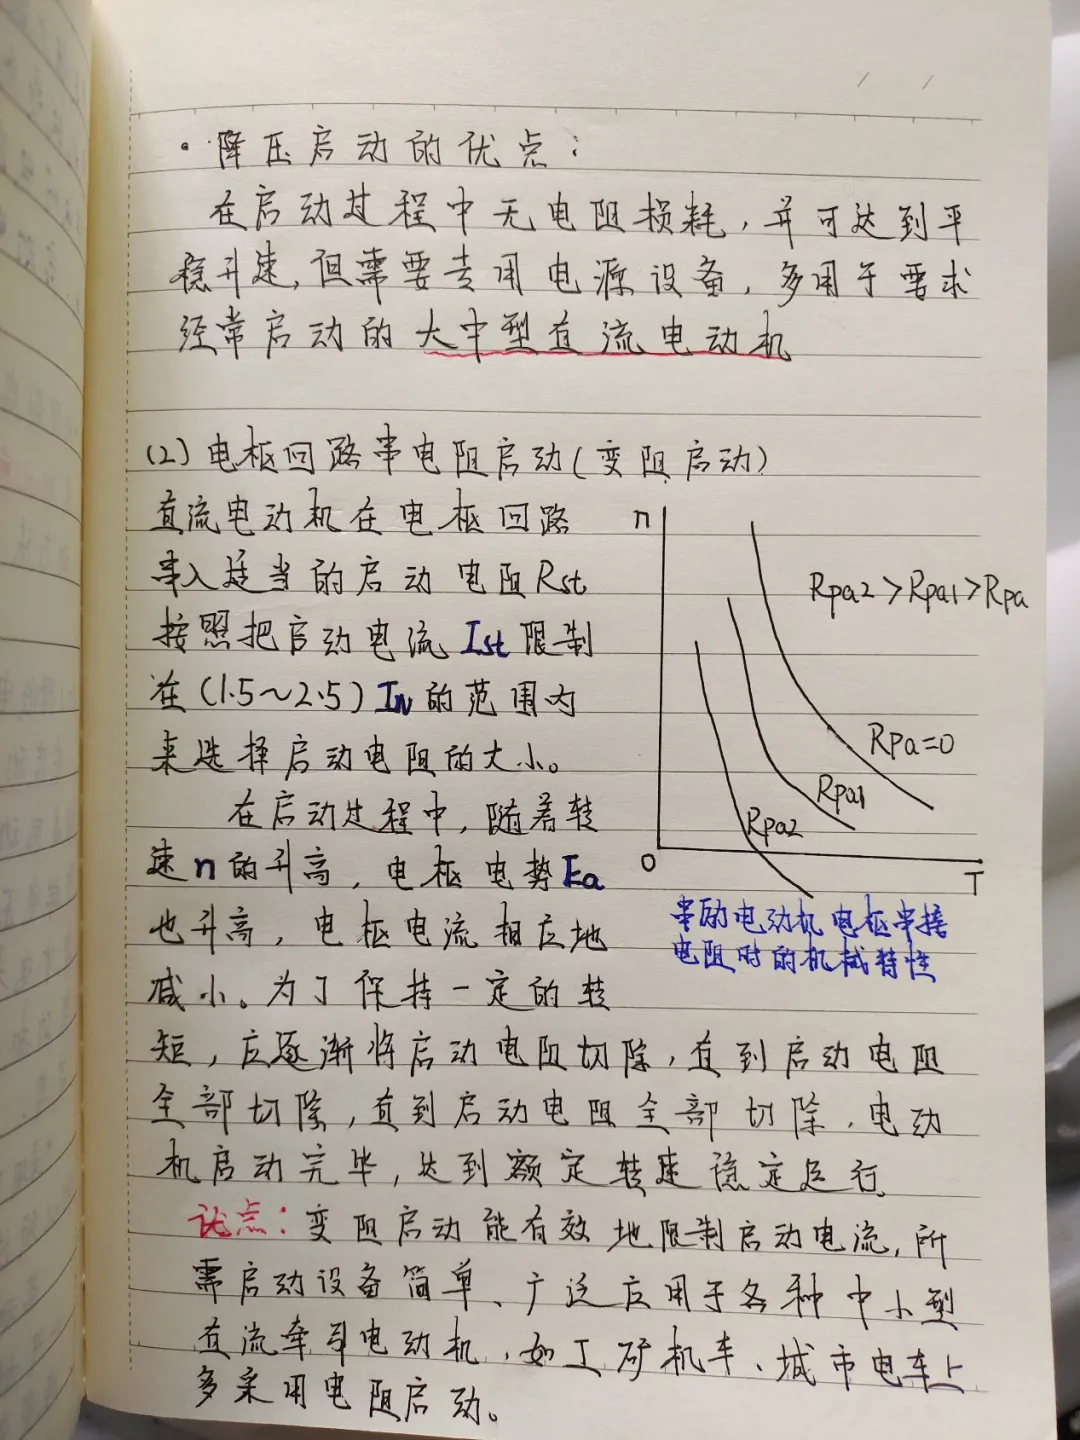 ·降压启动的优点：
在启动过程中无电阻损耗，并可达到平
稳升速，但需要专用电源设备，多用于要求
经常启动的大中型直流电动机
(2)电枢回路串电阻启动(变阻启动)
直流电动机在电枢回路
串入适当的启动电阻Rst
按照把启动电流Ist限制
在(1.5～2.5)IN的范围内
来选择启动电阻的大小。
在启动过程中，随着转
速n的升高，电枢电势Ea
也升高，电枢电流相应地
减小。为了保持一定的转
短，应逐渐将启动电阻切除，直到启动电阻
全部切除，直到启动电阻全部切除，电动
机启动完毕，达到额定转速稳定运行
n
Rpa2>Rpa1>Rpa
Rpa=0
Rpa1
Rpa2
O
T
串励电动机电枢串接
电阻时的机械特性
优点：变阻启动能有效地限制启动电流，所
需启动设备简单、广泛应用于各种中小型
直流牵引电动机，如工矿机车、城市电车上
多采用电阻启动。